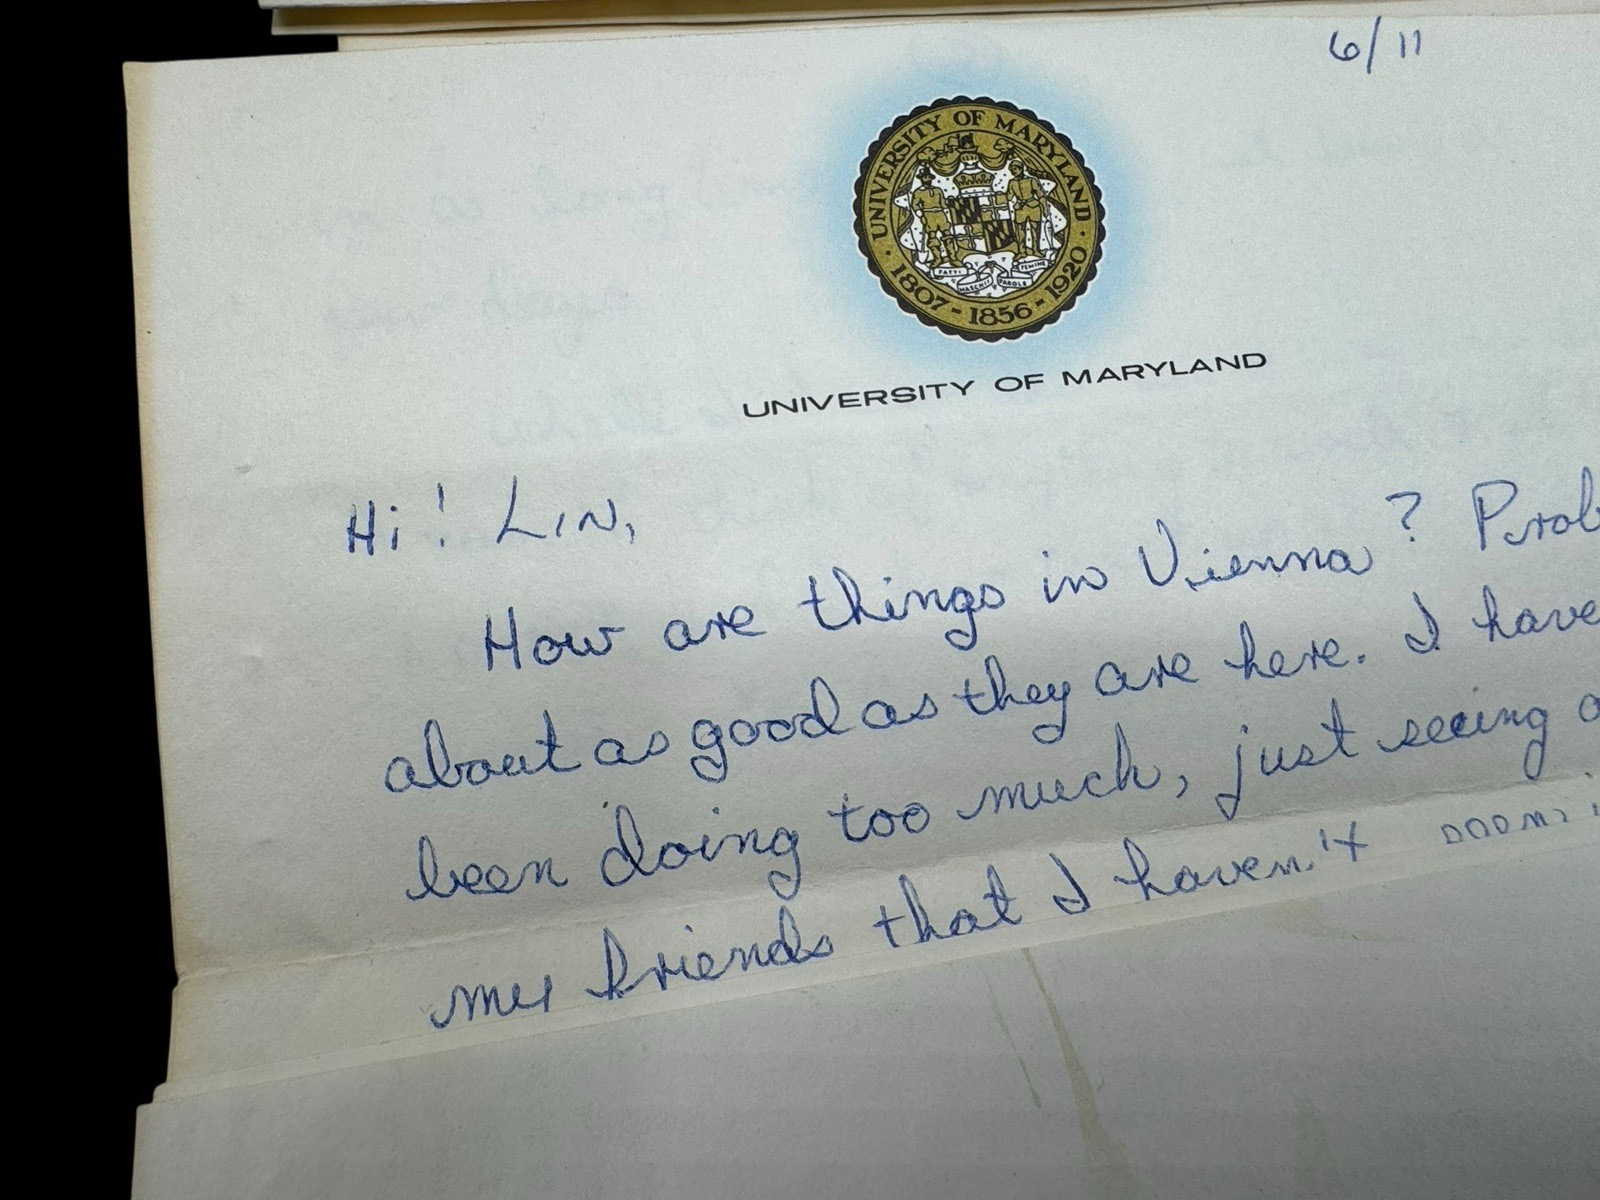 6/11
UNIVERSITY OF MARYLAND
1807 - 1856 - 1920
FATTI MASCHII PAROLE FEMINE
UNIVERSITY OF MARYLAND
Hi! LIN,
How are things in Vienna? Prob
about as good as they are here. I have
been doing too much, just seeing
my friends that I haven't